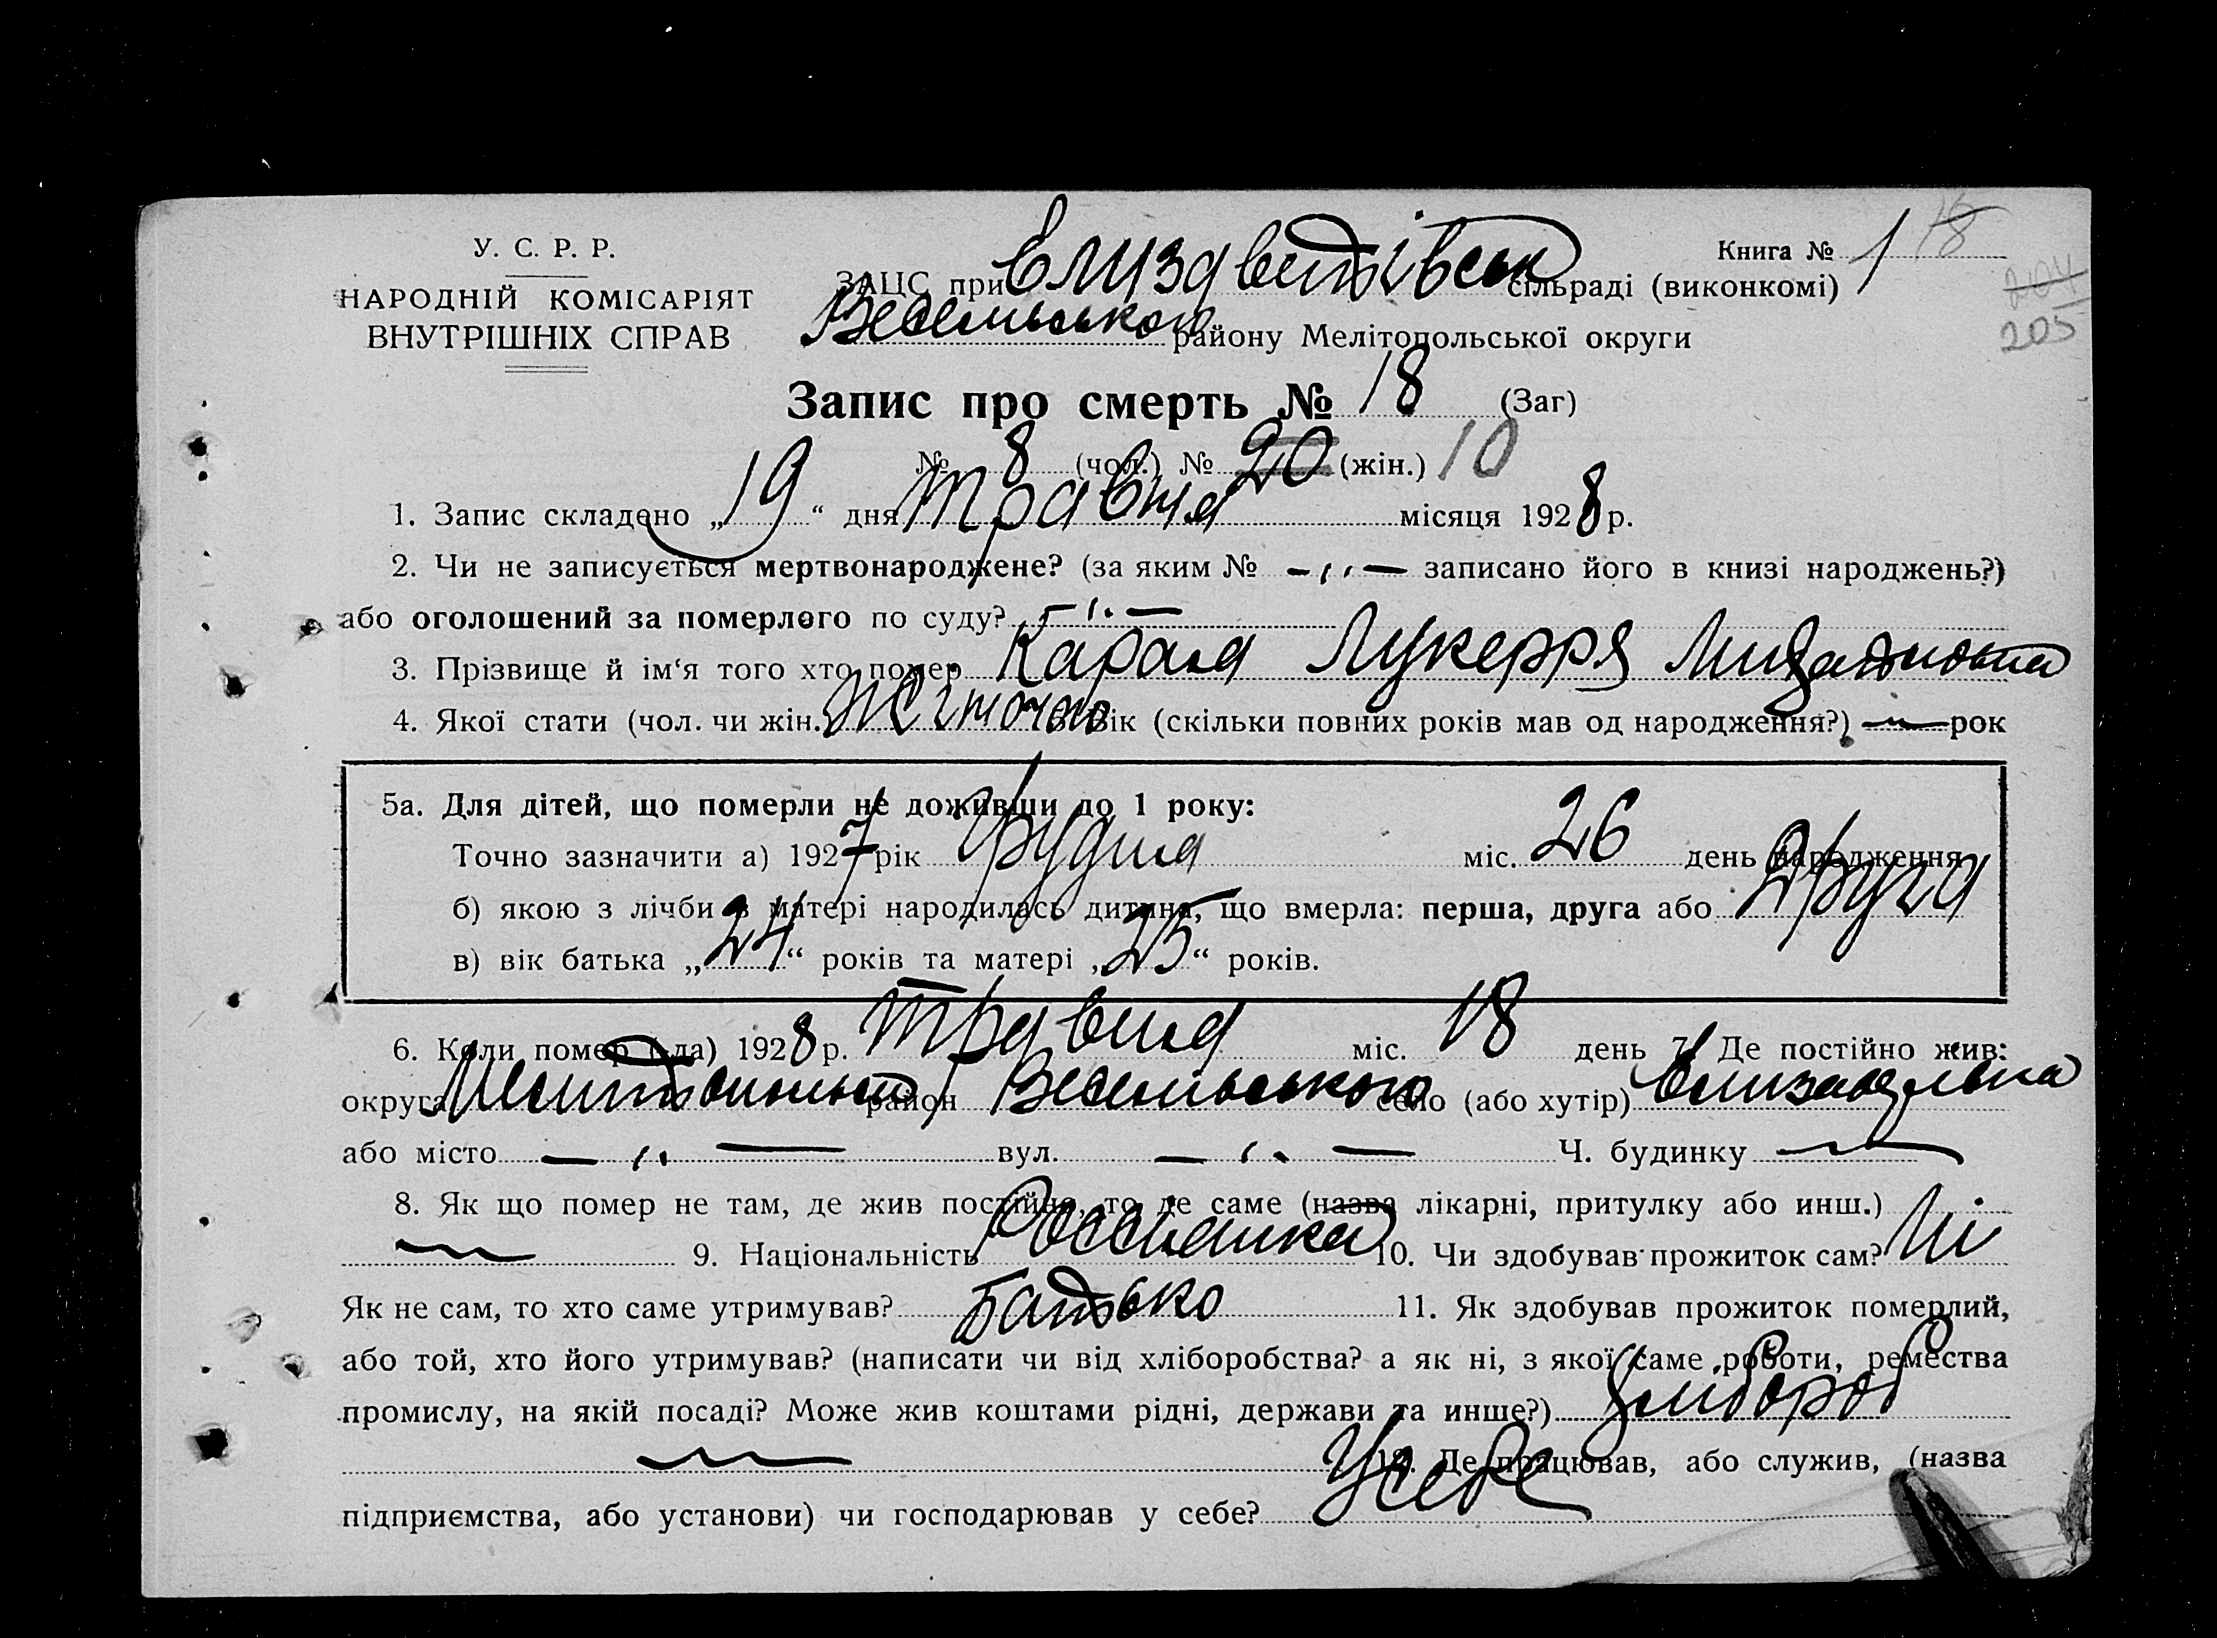 У. С. Р. Р.
НАРОДНІЙ КОМІСАРІЯТ
ВНУТРІШНІХ СПРАВ
Книга № 1 18
204
205
ЗАЦС при Єлизаветівськ сільраді (виконкомі)
Веселського району Мелітопольської округи
Запис про смерть № 18 (Заг)
№ 8 (чол.) № 20 (жін.) 10
1. Запис складено „19“ дня травня місяця 1928 р.
2. Чи не записується мертвонароджене? (за яким № -„- записано його в книзі народжень?)
або оголошений за померлого по суду? -„-
3. Прізвище й ім‘я того хто помер Лукерря
4. Якої стати (чол. чи жін.) 5. Вік (скільки повних років мав од народження?) — рок
5а. Для дітей, що померли не доживши до 1 року:
Точно зазначити а) 1927 рік Грудня міс. 26 день народження
б) якою з лічби в матері народилась дитина, що вмерла: перша, друга або Друга
в) вік батька „24“ років та матері „25“ років.
6. Коли помер (-ла) 1928 р. травня міс. 18 день 7. Де постійно жив:
округа район Веселського село (або хутір)
або місто -„- вул. -„- Ч. будинку —
8. Як що помер не там, де жив постійно, то де саме (назва лікарні, притулку або инш.)
— 9. Національність 10. Чи здобував прожиток сам? Ні
Як не сам, то хто саме утримував? Батько 11. Як здобував прожиток померлий,
або той, хто його утримував? (написати чи від хліборобства? а як ні, з якої саме роботи, ремества
промислу, на якій посаді? Може жив коштами рідні, держави та инше?) Хлібороб
— 12. Де працював, або служив, (назва
підприємства, або установи) чи господарював у себе? У себе